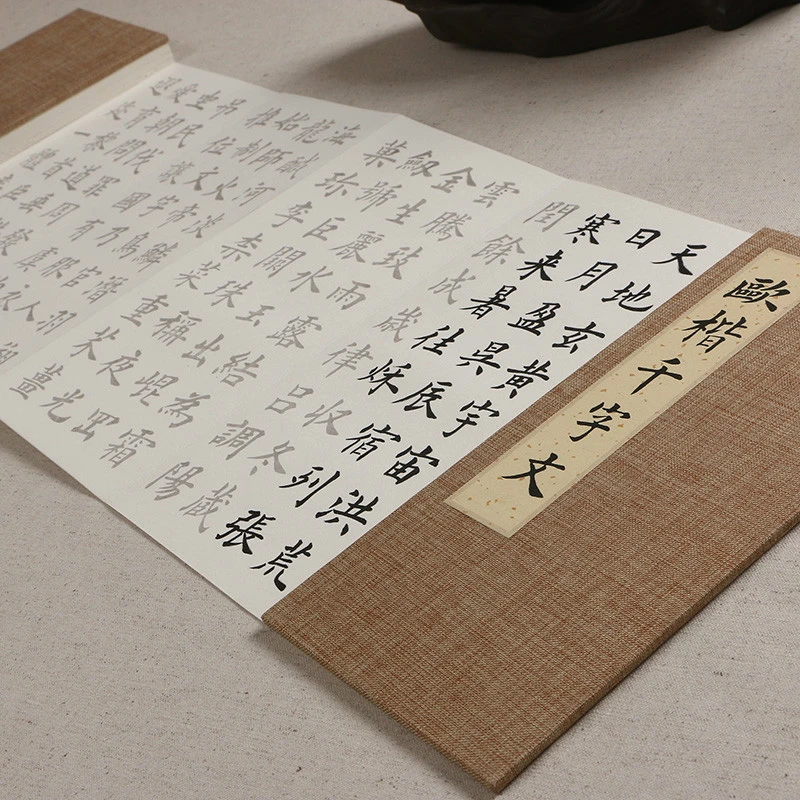 歐楷千字文
天地玄黄宇宙洪荒
日月盈昃辰宿列張
寒来暑往秌收冬藏
閏餘成歲律吕調陽
雲騰致雨露結為霜
金生麗水玉出崐罡
劔號巨闕珠稱夜光
菓珍李柰菜重芥薑
海鹹河淡鱗潛羽翔
龍師火帝鳥官人
始制文字乃服衣
推位讓國有虞
吊民伐罪周發
坐朝問道垂
愛育黎首臣
遐迩一體